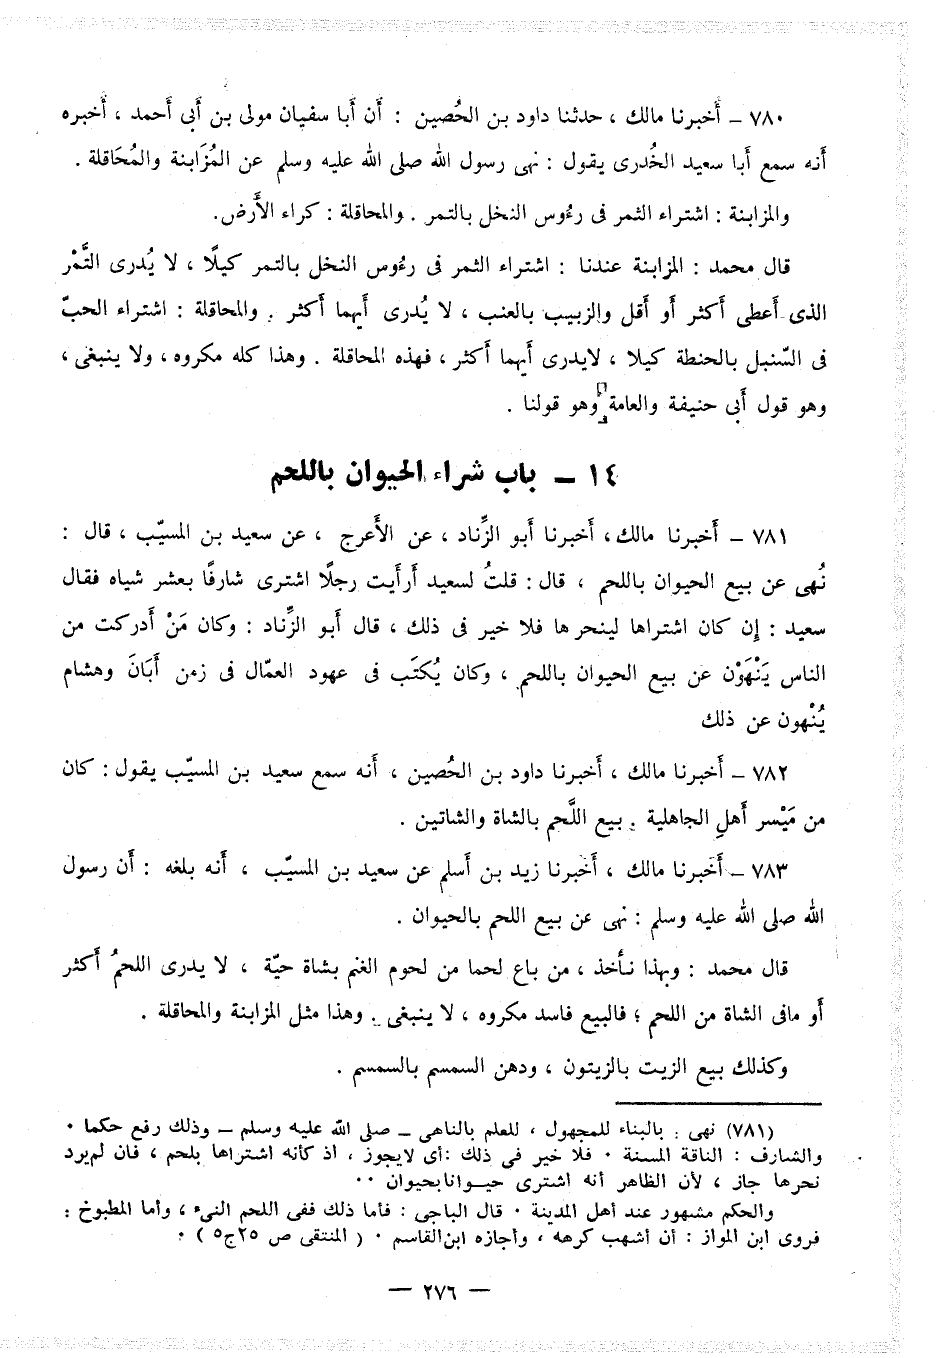 ٧٨٠ – أَخبرنا مالك ، حدثنا داود بن الحُصين : أَن أَبا سفيان مولى بن أَبى أَحمد ، أَخبره
أَنه سمع أَبا سعيد الخُدرى يقول : نهى رسول الله صلى الله عليه وسلم عن المُزَابنة والمُحَاقلة .
والمزابنة : اشتراء الثمر فى رءُوس النخل بالتمر . والمحاقلة : كراء الأَرض.
قال محمد : المزابنة عندنا : اشتراء الثمر فى رءُوس النخل بالتمر كيلًا ، لا يُدرى التَّمْر
الذى أَعطى أَكثر أَو أَقل والزبيب بالعنب ، لا يُدرى أَيهما أَكثر . والمحاقلة : اشتراء الحبّ
فى السّنبل بالحنطة كيلا ، لايدرى أَيهما أَكثر ، فهذه المحاقلة . وهذا كله مكروه ، ولا ينبغى ،
وهو قول أَبى حنيفة والعامة وهو قولنا .
١٤ – باب شراء الحيوان باللحم
٧٨١ – أَخبرنا مالك ، أَخبرنا أَبو الزِّناد ، عن الأَعرج ، عن سعيد بن المسيّب ، قال :
نُهى عن بيع الحيوان باللحم ، قال : قلتُ لسعيد أَرأَيت رجلًا اشترى شارفًا بعشر شياه فقال
سعيد : إِن كان اشتراها لينحرها فلا خير فى ذلك ، قال أَبو الزِّناد : وكان مَنْ أَدركت من
الناس يَنْهَوْن عن بيع الحيوان باللحم ، وكان يُكتَب فى عهود العمّال فى زمن أَبَانَ وهشام
يُنْهون عن ذلك
٧٨٢ – أَخبرنا مالك ، أَخبرنا داود بن الحُصين ، أَنه سمع سعيد بن المسيّب يقول : كان
من مَيْسر أَهلِ الجاهلية . بيع اللَّحم بالشاة والشاتين .
٧٨٣ – أَخبرنا مالك ، أَخبرنا زيد بن أَسلم عن سعيد بن المسيّب ، أَنه بلغه : أَن رسول
الله صلى الله عليه وسلم : نهى عن بيع اللحم بالحيوان .
قال محمد : وبهذا نأخذ ، من باع لحما من لحوم الغنم بشاة حيّة ، لا يدرى اللحمُ أَكثر
أَو مافى الشاة من اللحم ؛ فالبيع فاسد مكروه ، لا ينبغى . وهذا مثل المزابنة والمحاقلة .
وكذلك بيع الزيت بالزيتون ، ودهن السمسم بالسمسم .
(٧٨١) نهى . بالبناء للمجهول ، للعلم بالناهى – صلى الله عليه وسلم – وذلك رفع حكما ٠
والشارف : الناقة المسنة ٠ فلا خير فى ذلك : أى لايجوز ، اذ كأنه اشتراها بلحم ، فان لم يرد
نحرها جاز ، لأن الظاهر أنه اشترى حيوانا بحيوان ٠٠
والحكم مشهور عند أهل المدينة ٠ قال الباجى : فأما ذلك ففى اللحم النىء ، وأما المطبوخ :
فروى ابن المواز : أن أشهب كرهه ، وأجازه ابن القاسم ٠ ( المنتقى ص ٢٥ ج٥ ) ٠
— ٢٧٦ —